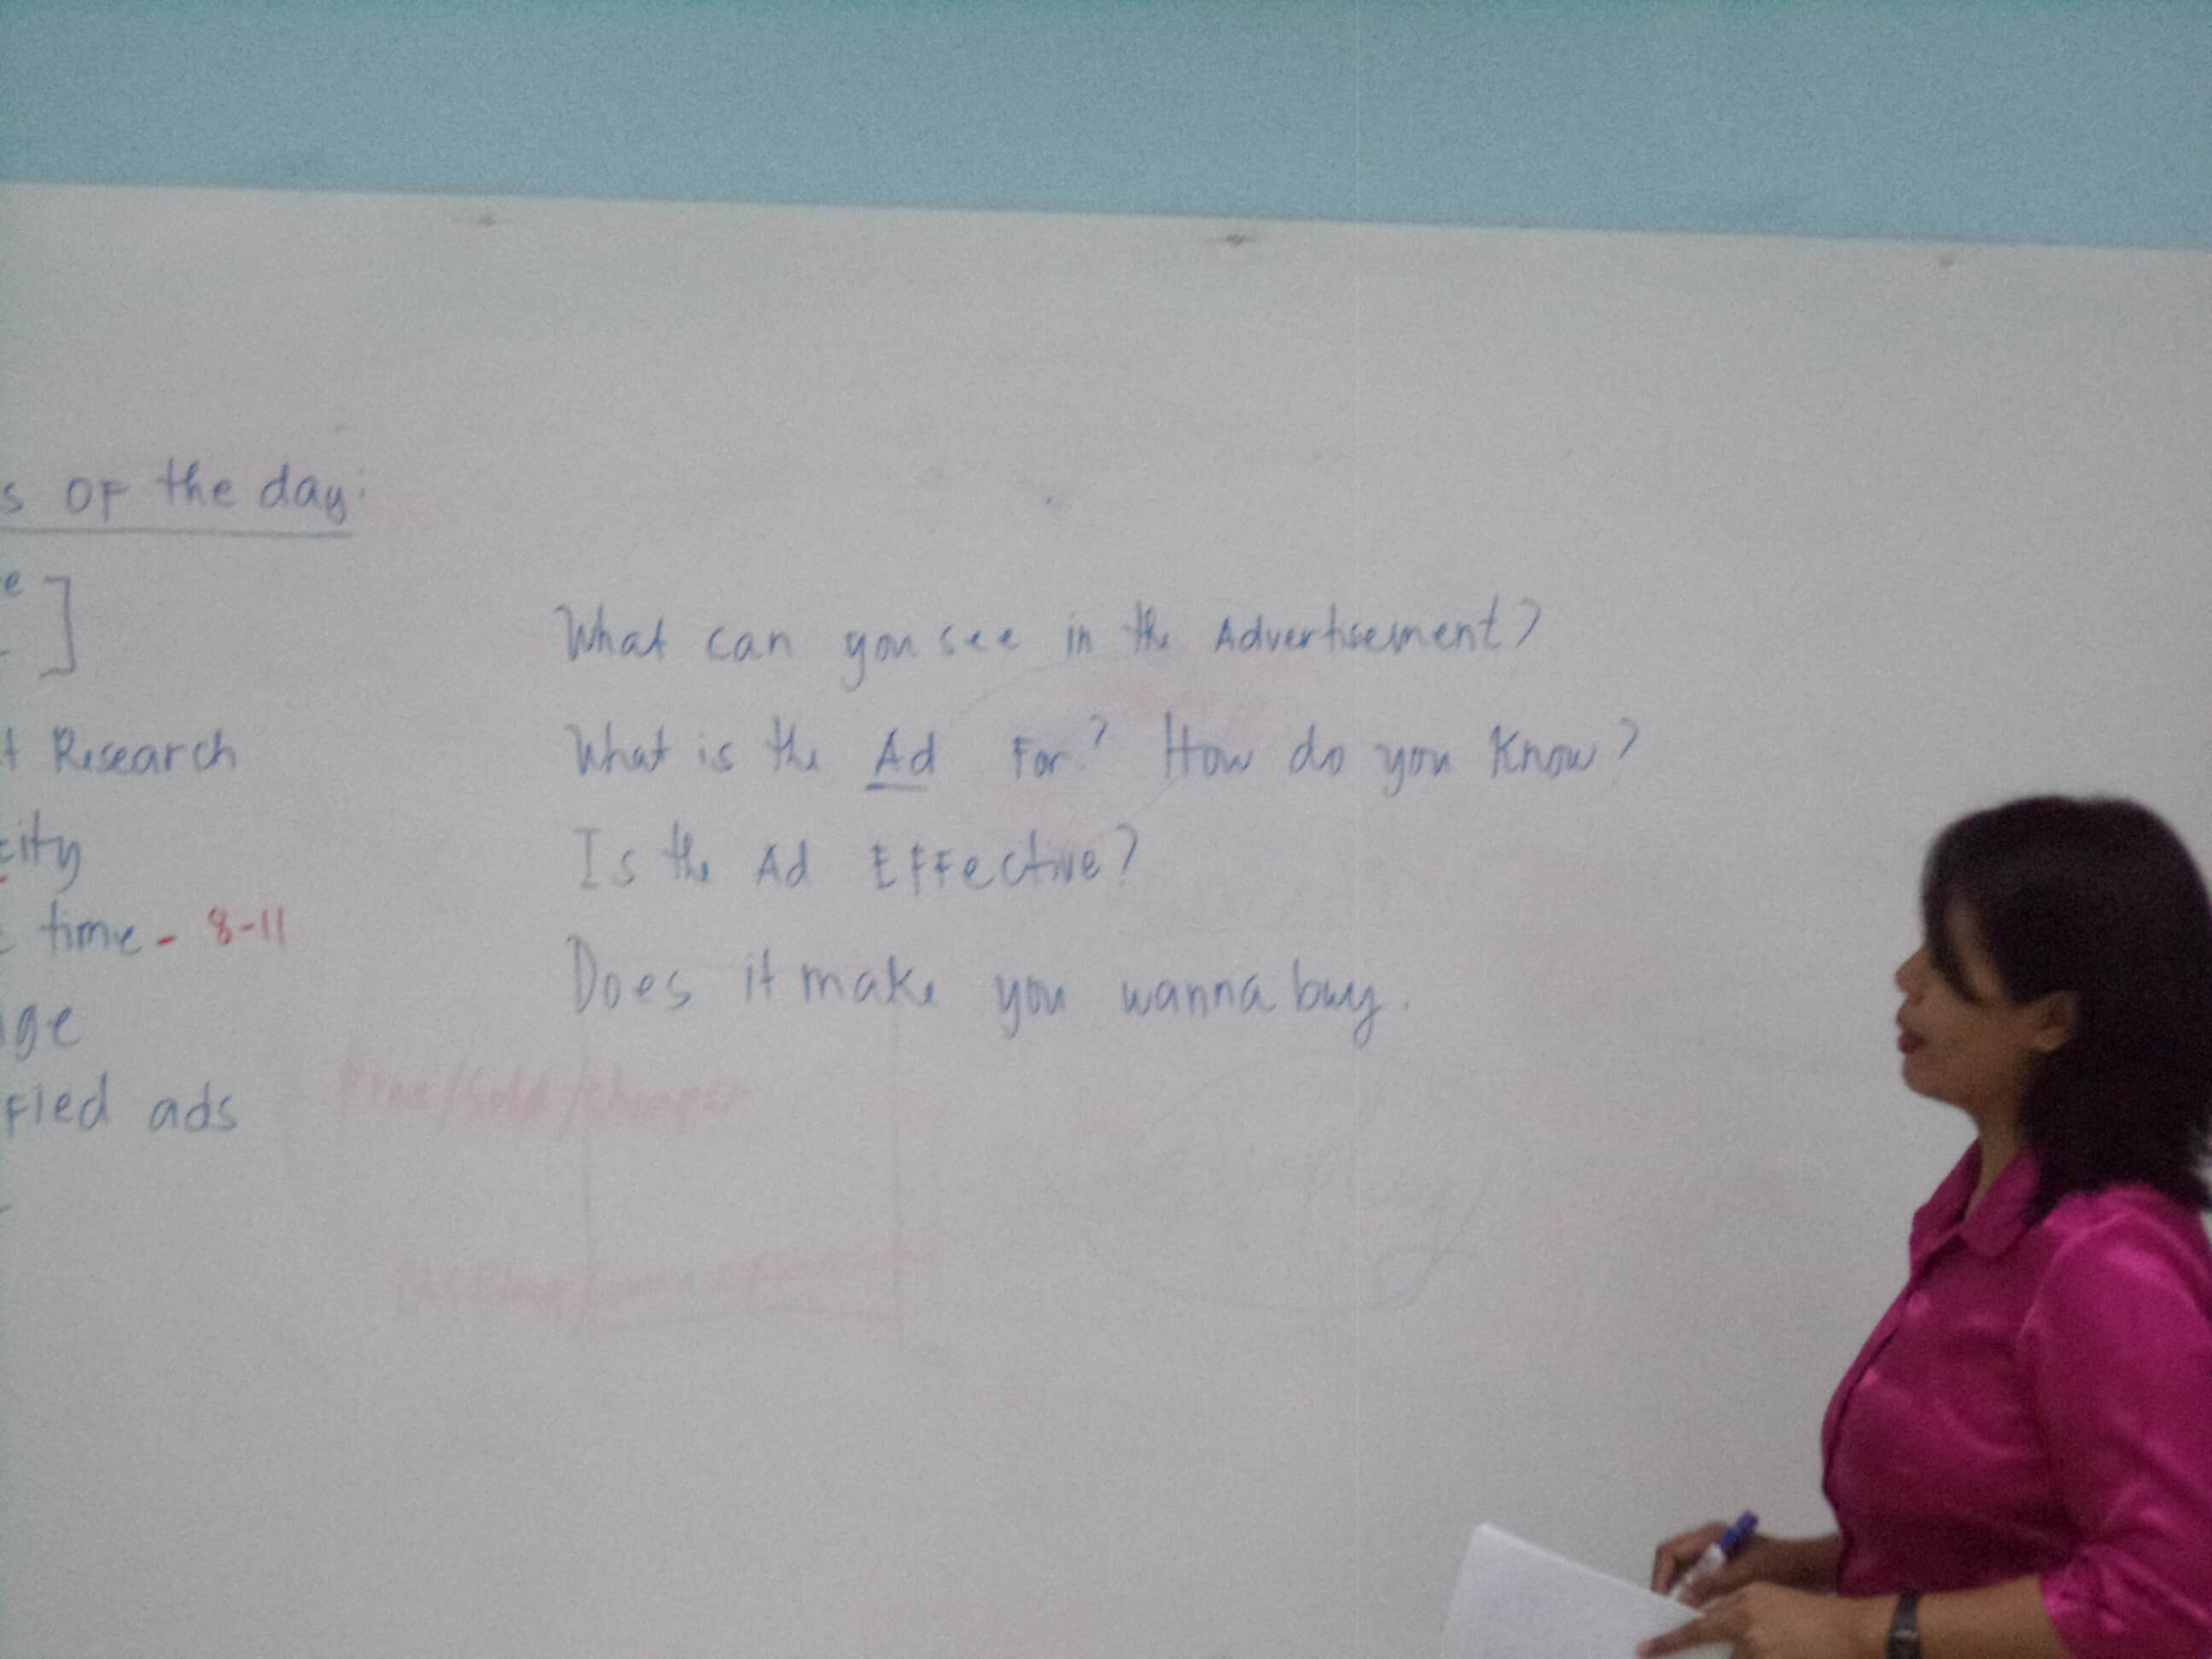 s OF the day:
e ]
t Research
city
time - 8-11
age
fied ads
What can you see in the Advertisement?
What is the Ad For? How do you Know?
Is the Ad EFFective?
Does it make you wanna buy.